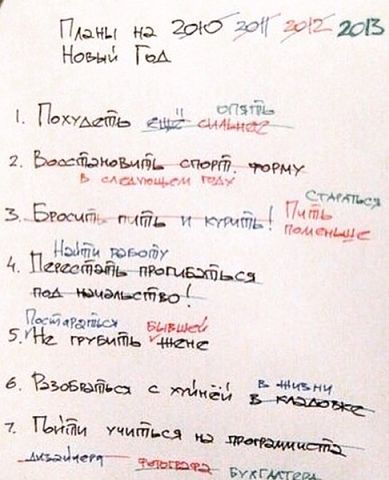 Планы на 2010 2011 2012 2013
Новый Год
опять
1. Похудеть ещё сильнее
2. Восстановить спорт. форму
в следующем году
Стараться
3. Бросить пить и курить! Пить
поменьше
Найти работу
4. Перестать прогибаться
под начальство!
Постараться бывшей
5. Не грубить жене
6. Разобраться с хуйнёй в жизни
в кладовке
7. Пойти учиться на программиста
дизайнера фотографа бухгалтера